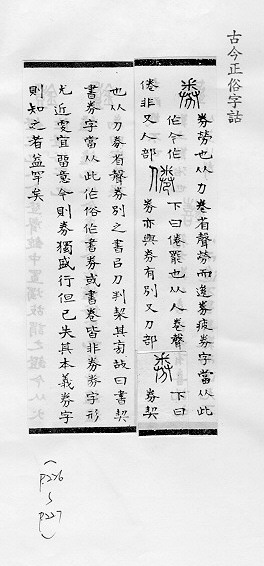 古今正俗字詁
券勞也从力卷省聲勞而造券疲券字當从此
俗今作 下曰倦罷也从人卷聲 下曰
倦非又人部 券亦與券有別又刀部 券契
也从刀省聲券別之書㠯刀判契其旁故曰書契
書券字當从此俗作書券或書卷皆非券券字形
尤近宜畱意今則券獨盛行但已失其本義券字
則知之者益罕矣
(P226
~
P227)